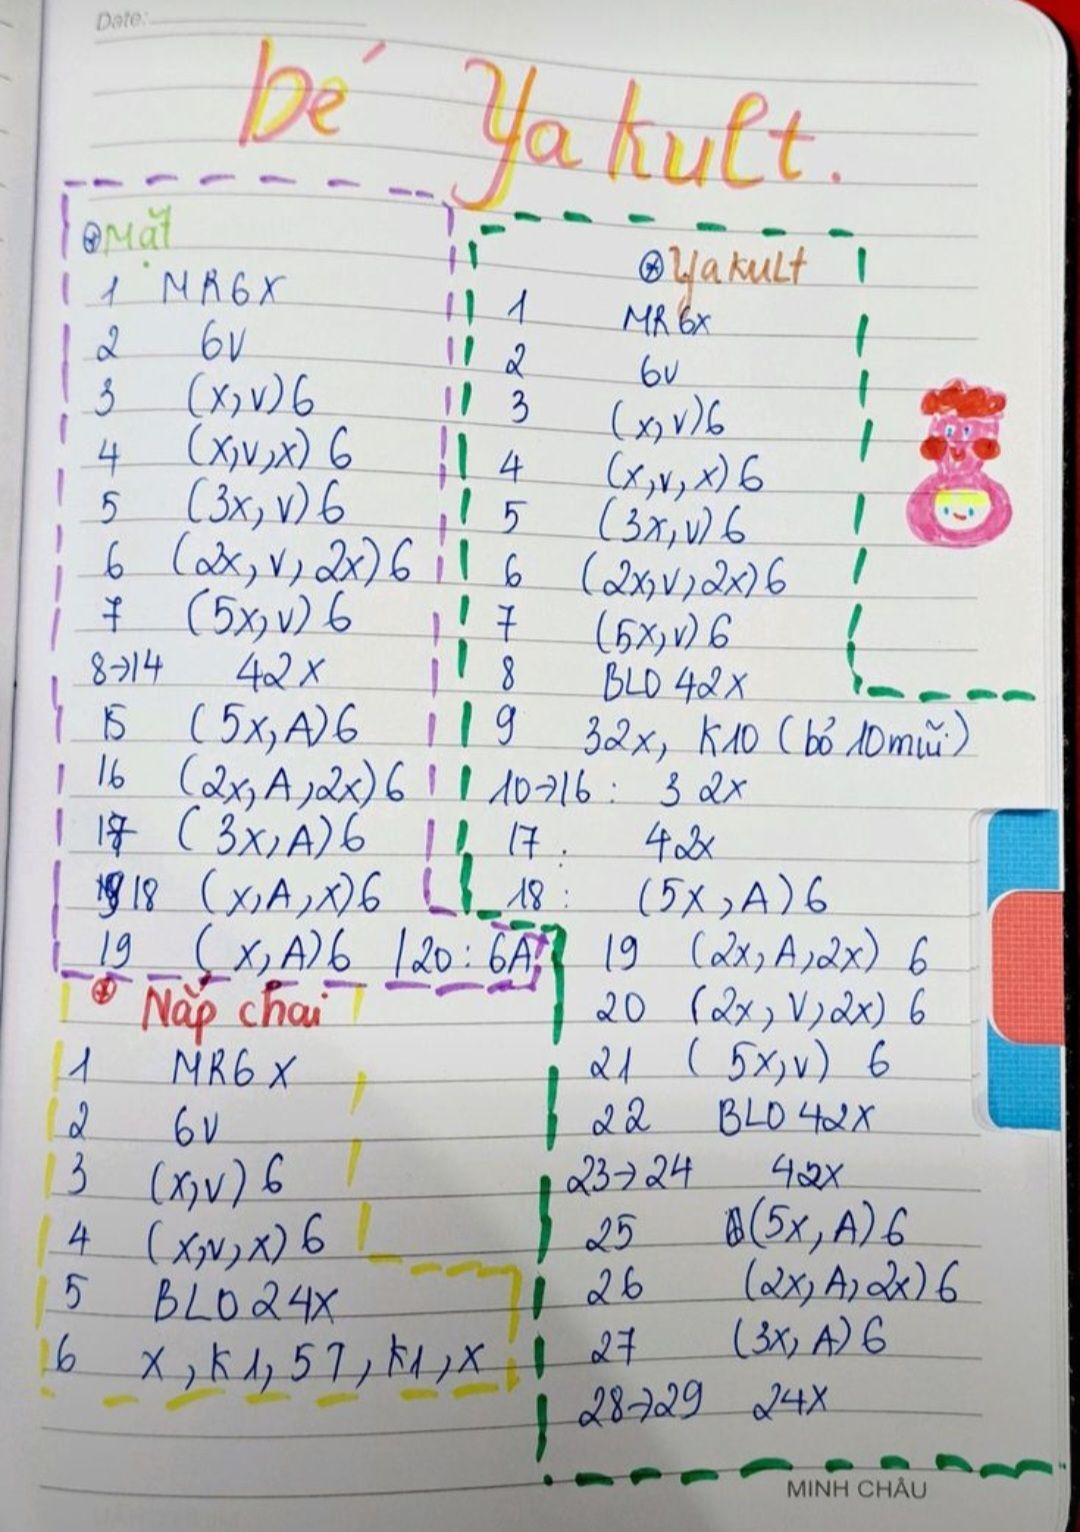 Date:
bé Yakult.
Mặt
1 MR6X
2 6V
3 (x,v)6
4 (x,v,x) 6
5 (3x, v) 6
6 (2x, v, 2x) 6
7 (5x, v) 6
8→14 42x
15 (5x, A) 6
16 (2x, A, 2x) 6
17 (3x, A) 6
18 (x, A, x) 6
19 (x, A) 6 | 20 : 6A
Nắp chai
1 MR6X
2 6V
3 (x,v) 6
4 (x,v,x) 6
5 BLO 24x
6 x, K1, 5T, K1, x
Yakult
1 MR 6x
2 6V
3 (x, v)6
4 (x, v, x) 6
5 (3x, v) 6
6 (2x, v, 2x) 6
7 (5x, v) 6
8 BLO 42x
9 32x, K10 (bỏ 10 mũi)
10→16 : 32x
17 : 42x
18 : (5x, A) 6
19 (2x, A, 2x) 6
20 (2x, V, 2x) 6
21 (5x, v) 6
22 BLO 42x
23→24 42x
25 (5x, A) 6
26 (2x, A, 2x) 6
27 (3x, A) 6
28→29 24x
MINH CHÂU